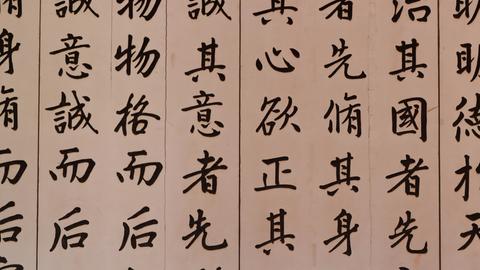 明明德於天
治其國者先
者先脩其身
其心欲正其
誠其意者先
物物格而后
誠意誠而后
身脩而后